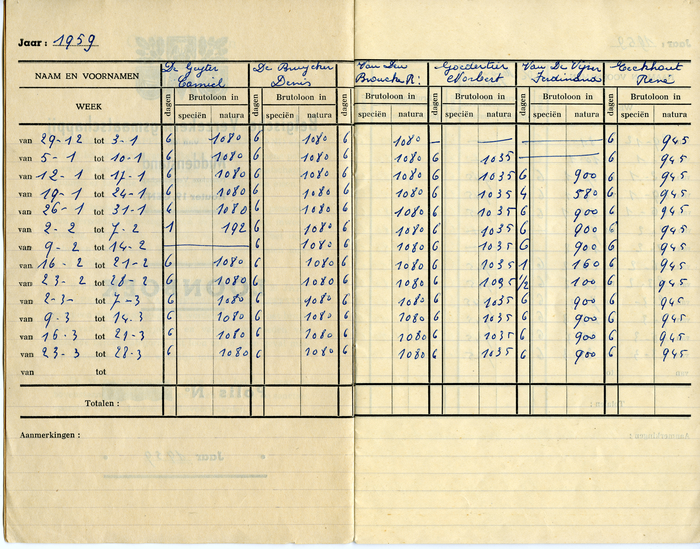 Jaar : 1959
NAAM EN VOORNAMEN De Guyter Camiel De Bruycker Denis Van Den Broucke R: Goedertier Norbert Van De Vijver Ferdinand Eeckhout René
WEEK dagen Brutoloon in dagen Brutoloon in dagen Brutoloon in dagen Brutoloon in dagen Brutoloon in dagen Brutoloon in
speciën natura speciën natura speciën natura speciën natura speciën natura speciën natura
van 29-12 tot 3-1 6 1080 6 1080 6 1080 — — — 6 945
van 5-1 tot 10-1 6 1080 6 1080 6 1080 6 1035 — 6 945
van 12-1 tot 17-1 6 1080 6 1080 6 1080 6 1035 6 900 6 945
van 19-1 tot 24-1 6 1080 6 1080 6 1080 6 1035 4 580 6 945
van 26-1 tot 31-1 6 1080 6 1080 6 1080 6 1035 6 900 6 945
van 2-2 tot 7-2 1 192 6 1080 6 1080 6 1035 6 900 6 945
van 9-2 tot 14-2 — 6 1080 6 1080 6 1035 6 900 6 945
van 16-2 tot 21-2 6 1080 6 1080 6 1080 6 1035 1 160 6 945
van 23-2 tot 28-2 6 1080 6 1080 6 1080 6 1035 1/2 100 6 945
van 2-3- tot 7-3 6 1080 6 1080 6 1080 6 1035 6 900 6 945
van 9-3 tot 14-3 6 1080 6 1080 6 1080 6 1035 6 900 6 945
van 16-3 tot 21-3 6 1080 6 1080 6 1080 6 1035 6 900 6 945
van 23-3 tot 28-3 6 1080 6 1080 6 1080 6 1035 6 900 6 945
van tot
Totalen :
Aanmerkingen :